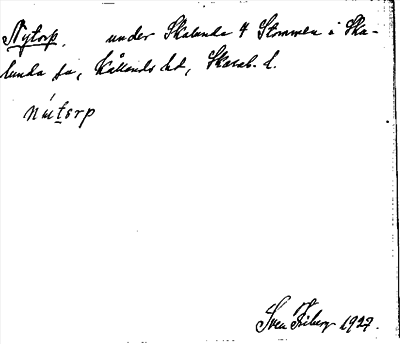 Nytorp. under Skalunda 4 Stommen i Ska-
lunda sn, Kållands hd, Skarab. l.
nútorp
Sven Friberg 1927.